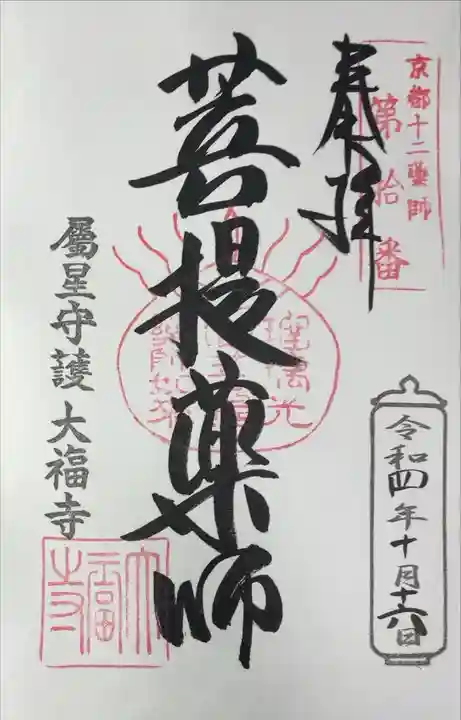 京都十二薬師
第拾番
奉拝
菩提薬師
令和四年十月十六日
屬星守護 大福寺
大福寺